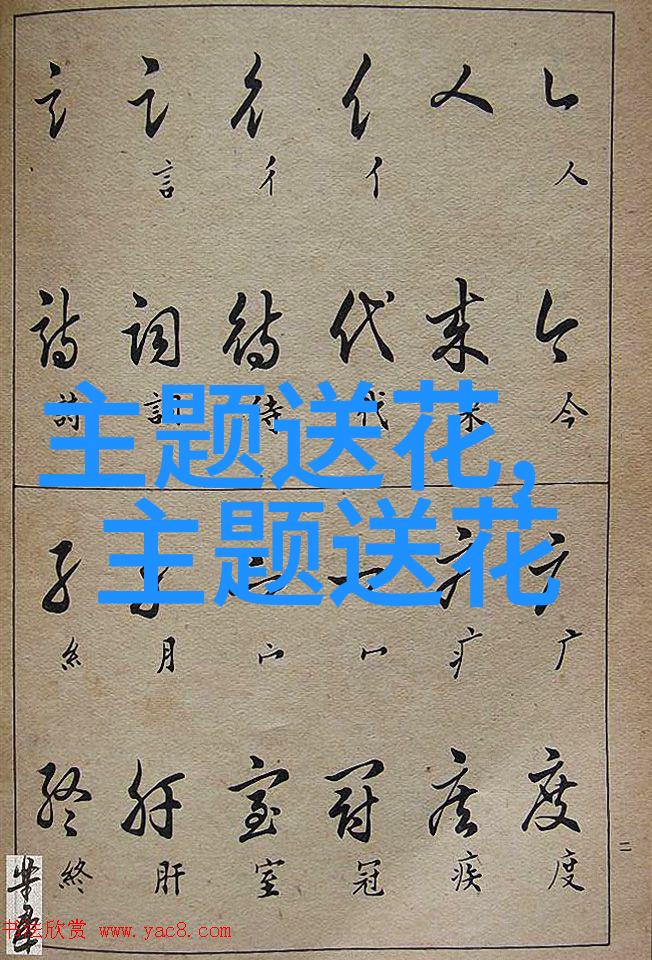 人 人 亻 彳 言 言
人 亻 彳 言
今 来 代 待 詞 詩
今 来 代 待 詞 詩
主题送花,
主题送花
广 疒 冖 宀 月 糸
广 疒 冖 宀 月 糸
度 疾 冠 室 肝 終
度 疾 冠 室 肝 終
二
书法欣赏 www.yac8.com